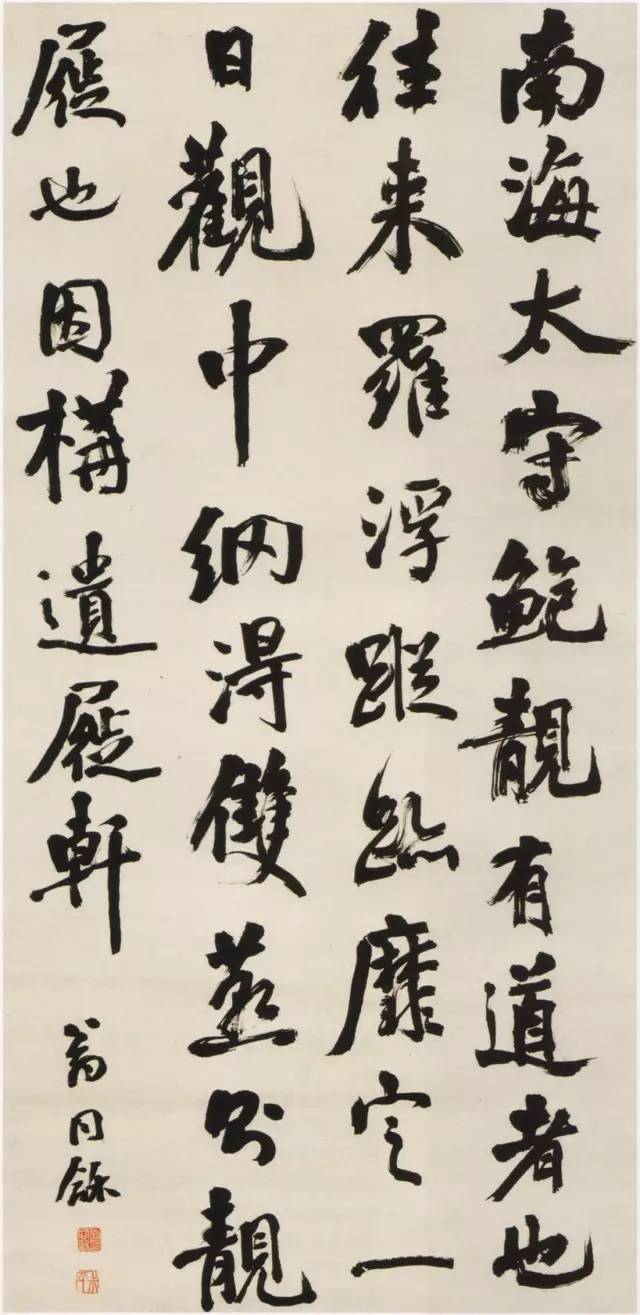 南海太守鮑靚有道者也
往来羅浮蹤跡靡定一
日觀中網得雙燕則靚
屣也因構遺屣軒
翁同龢